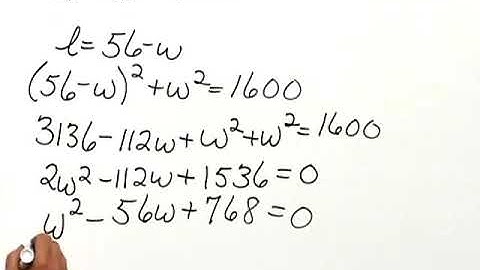 l=56-w
(56-w)²+w²=1600
3136-112w+w²+w²=1600
2w²-112w+1536=0
w²-56w+768=0